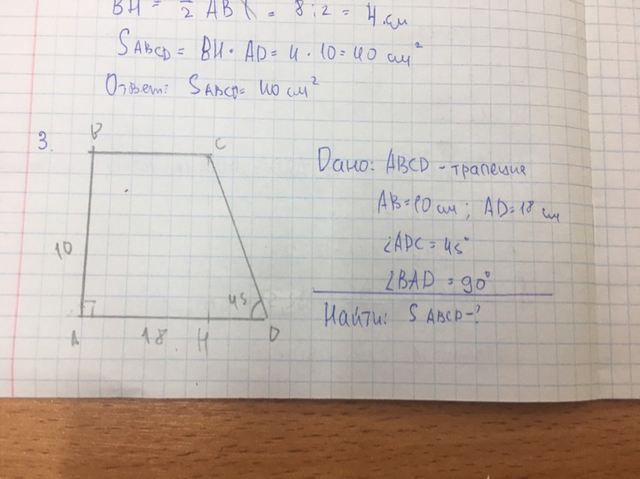 BH = 1/2 AB = 8:2 = 4 см
S ABCD = BH · AD = 4 · 10 = 40 см²
Ответ: S ABCD = 40 см²
3.
B
C
10
45
A
18
H
D
Дано: ABCD - трапеция
AB=10 см; AD=18 см
∠ADC = 45°
∠BAD = 90°
Найти: S ABCD-?